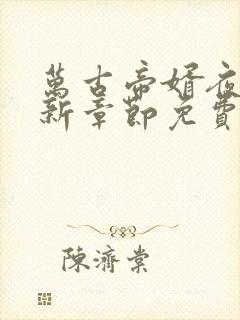 萬古帝婿夜
新章節免費
陳濟棠